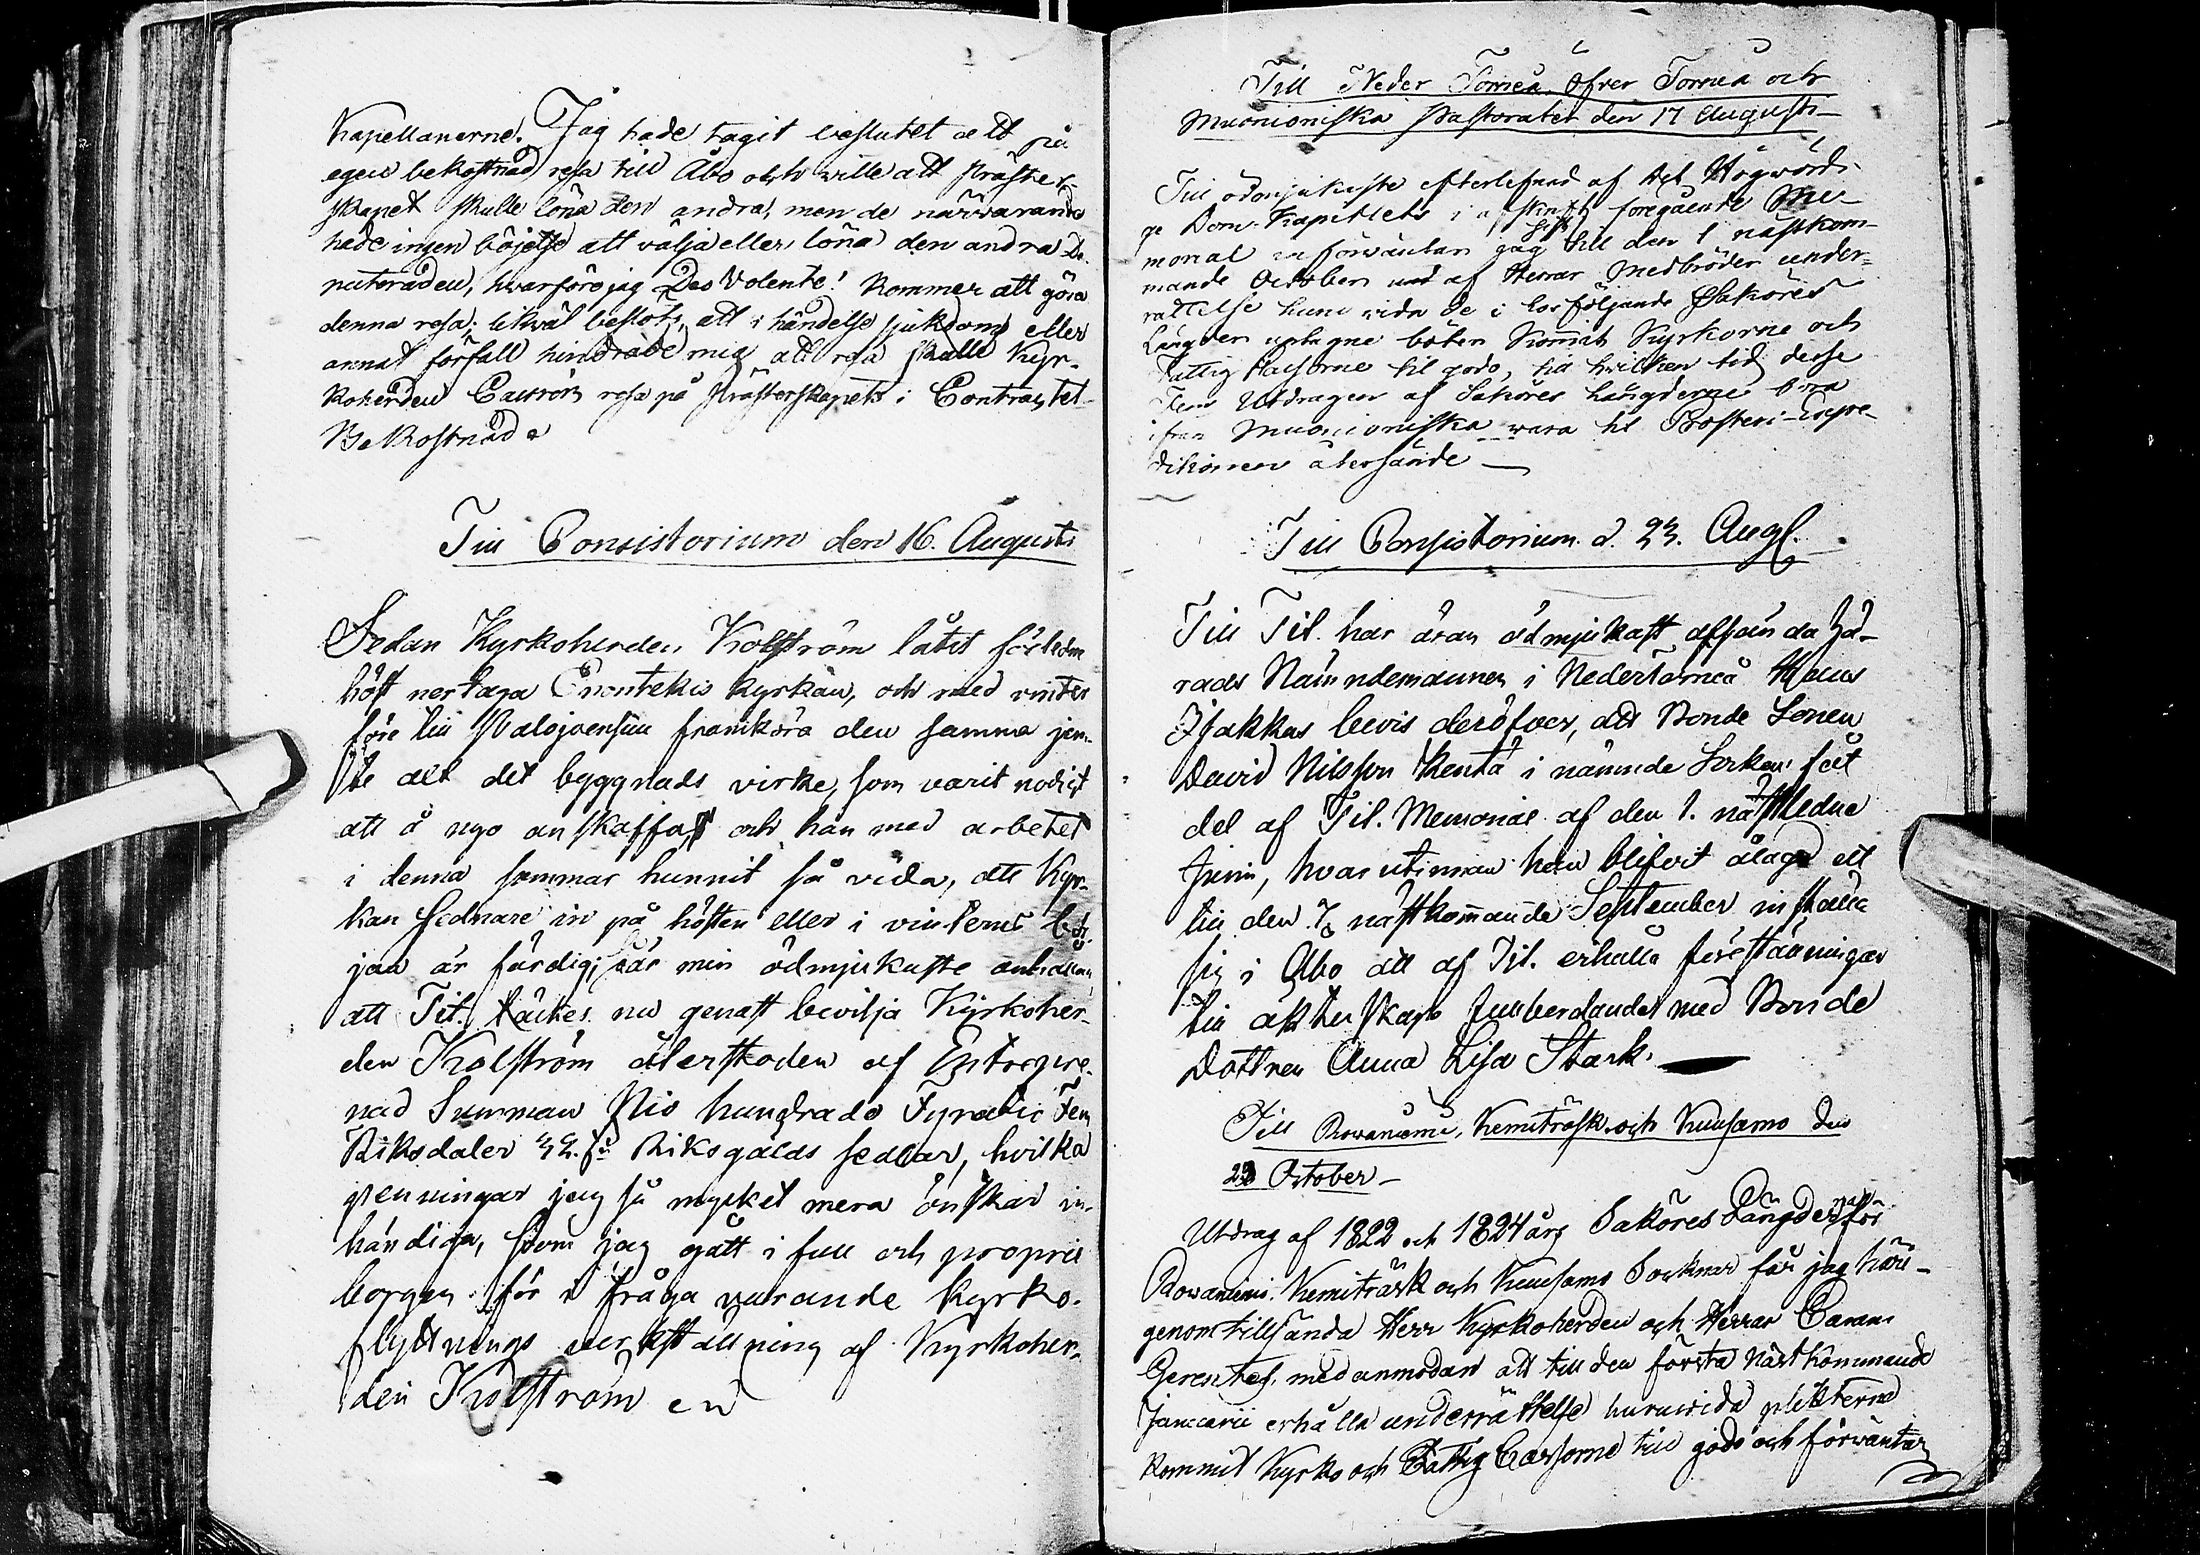 Kapellanerne. Jag hade tagit beslutet att på
egen bekostnad resa till Åbo och wille att Präster-
skapet skulle löna den andra, men de närvarande
hade ingen böjelse att välja eller löna den andra De-
puteraden, hvarföre jag Deo Volente! kommer att göra
denna resa; likväl beslöts, att i händelse sjukdom eller
annat förfall hindrade mig att resa skulle Kyr-
koherden Castrén resa på Prästerskapets i Contractet
Bekostnad
Till Consistorium den 16. Augusti
Sedan Kyrkoherden Kolström låtit förledne
höst nertaga Enontekis kyrkan, och med vinter
före till Palojoensuu framköra den samma jem-
te alt det byggnads virke, som varit nödigt
att å nyo anskaffas, och han med arbetet
i denna sommar hunnit så vida, att Kyr-
kan sednare in på hösten eller i vinterns bör-
jan är färdig; får min ödmjukaste anhållan,
att Tit. täcktes nu genast bevilja Kyrkoher-
den Kolström återstoden af Entrepre-
nad Summan Nio hundrade Fyratio Fem
Riksdaler 42. s. Riksgälds sedlar, hvilka
penningar jag så mycket mera önskar in-
händiga, som jag gått i full och proprie
borgen för i fråga varande kyrko-
flyttnings verkställning af Kyrkoher-
den Kolström
Till Neder Torneå, Öfver Torneå och
Muonioniska Pastoratet den 17 Augusti
Till ödmjukaste efterlefnad af Högwördi-
ge Dom-Kapitlets i afskrift föregående Me-
morial förväntar jag till den 1 nästkom-
mande October af Herrar Medbröder under-
rättelse huru vida de i hosföljande Saköres
Längder uptagne böter kommit Kyrkorne och
Fattig Cassorne til godo, til hvilken tid desse
Fem Utdragen af Saköres längderne
ifrån Muonioniska wara til Prosteri-Expe-
ditionen återsände
Till Consistorium d. 23. Aug.
Till Tit. har äran ödmjukast afsända Hä-
rads Nämndemannen i Nedertorneå Hans
Isakkas bevis deröfver, att Bonde Sonen
David Nilsson Kenta i nämnde Socken fått
del af Tit. Memorial af den 1. nästledne
Junii, hvarutinnan han blifvit ålagd att
till den 7 nästkommande September inställa
sig i Åbo att af Tit. erhålla föreställningar
till äktenskaps fullbordandet med Bonde
Dottren Anna Lisa Stark.
Till Rowaniemi, Kemiträsk och Kuusamo den
23 October
Utdrag af 1822 och 1824 års Saköres Längder för
Rowaniemi, Kemiträsk och Kuusamo Socknar får jag här-
genom tillsända Herr Kyrkoherden och Herrar
med anmodan att till den första nästkommande
Januarii erhålla underrättelse huruvida plikterna
kommit Kyrko och Fattig Cassorne till godo och förväntar